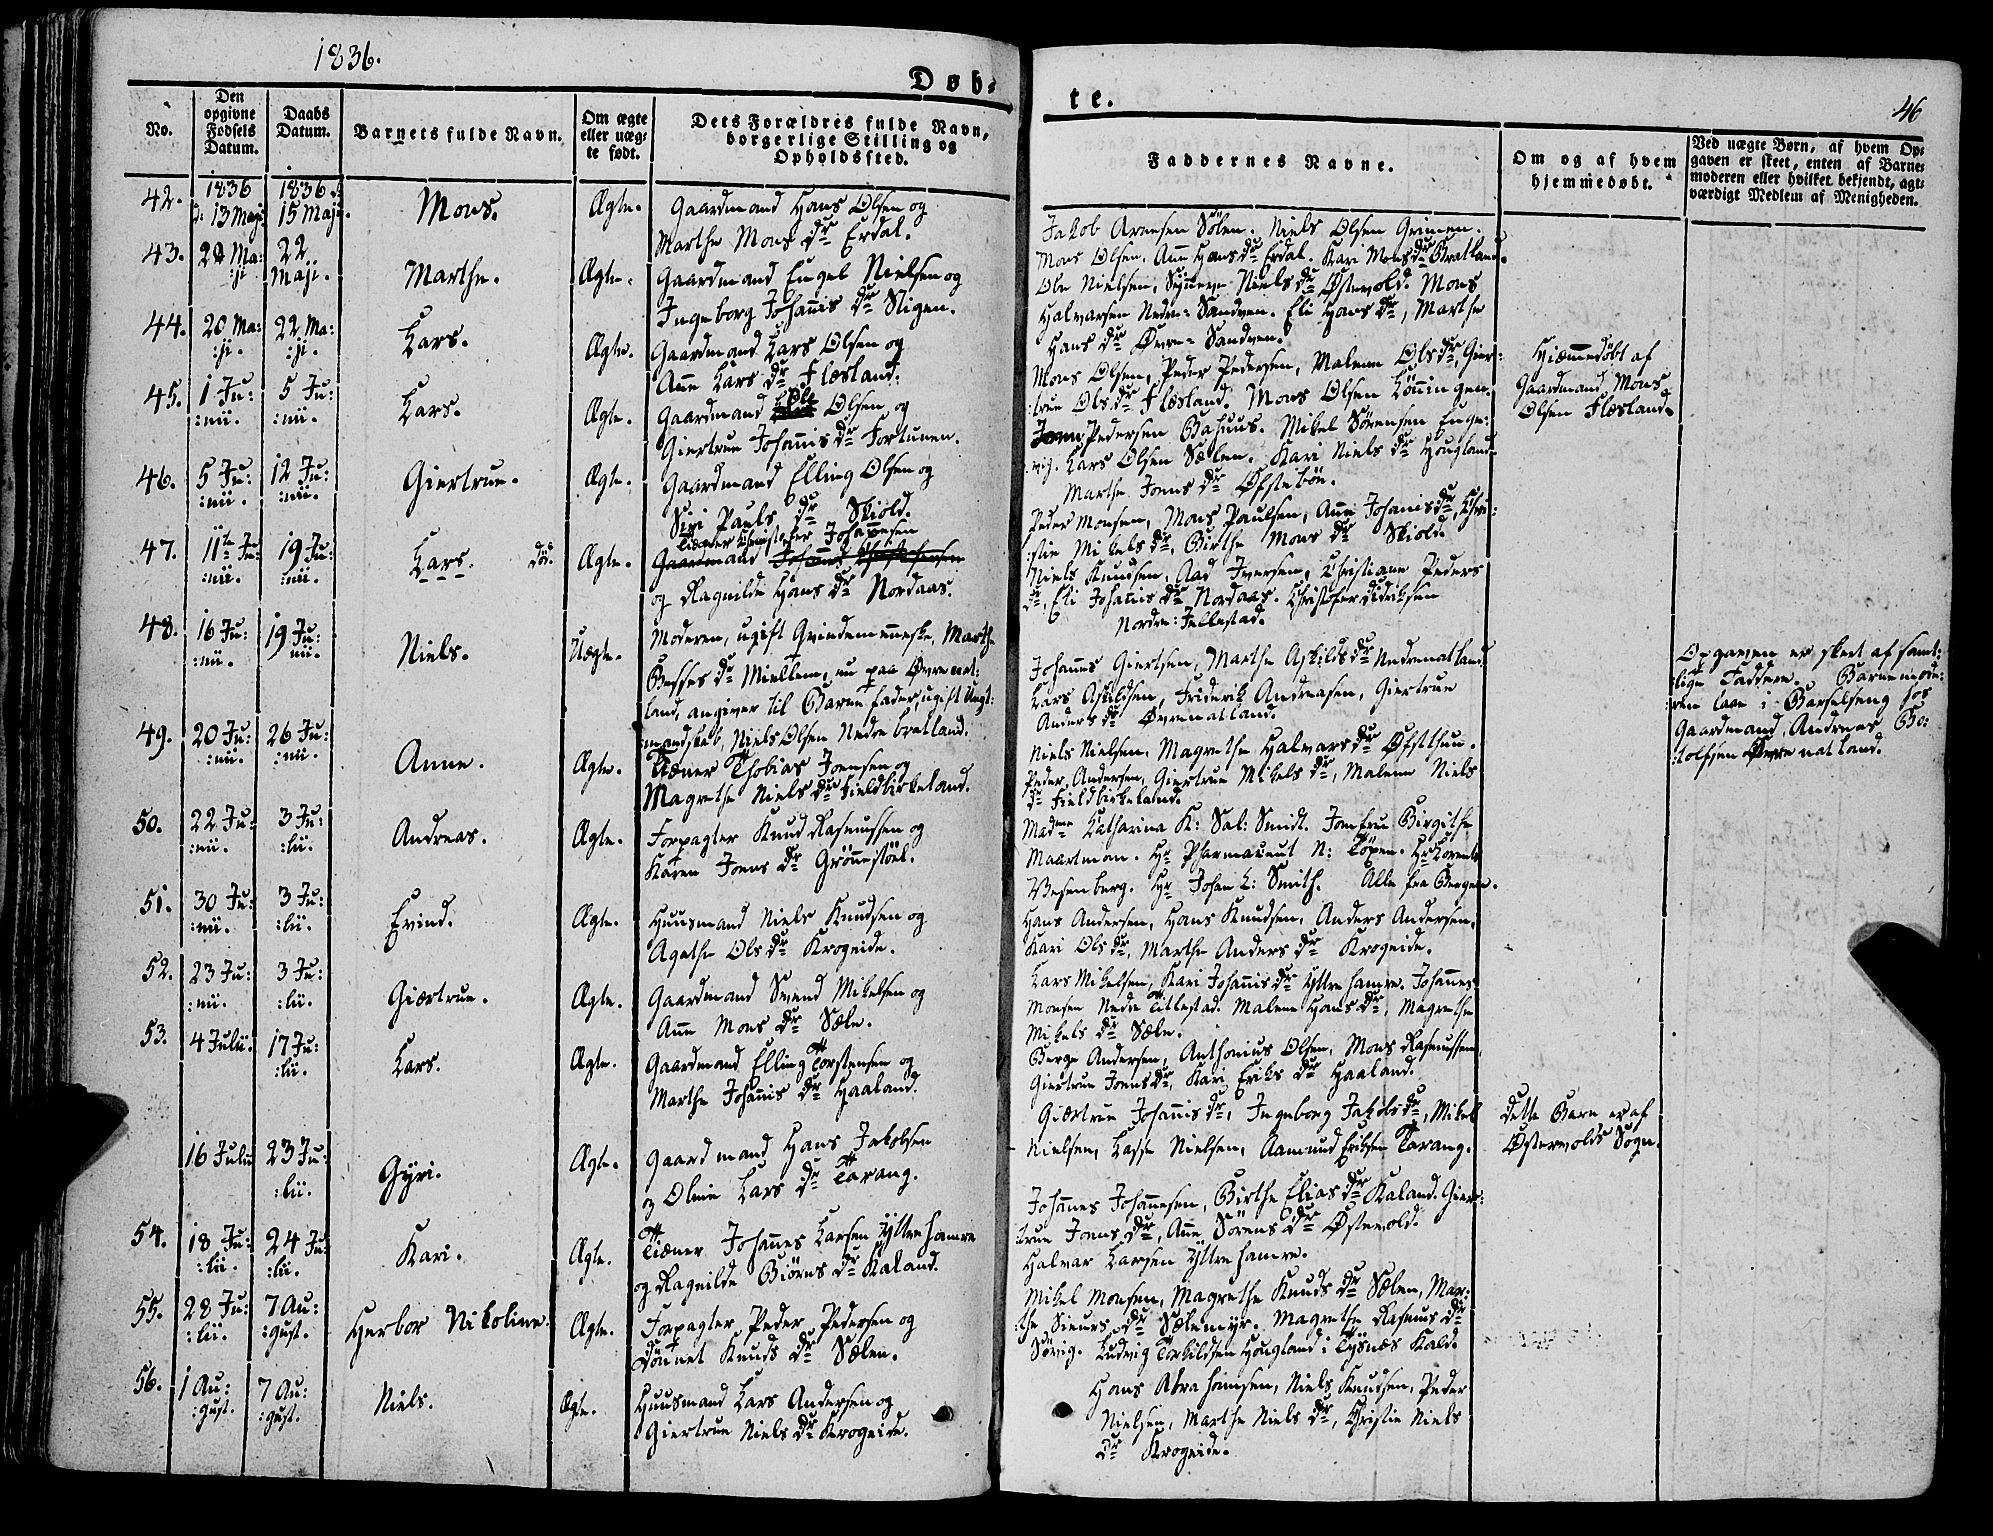 1836.
Døb-
te.
46
No.
Den opgivne Fødsels Datum.
Daabs Datum.
Barnets fulde Navn.
Om ægte eller uæg-
te født.
Dets Forældres fulde Navn,
borgerlige Stilling og
Opholdssted.
Faddernes Navne.
Om og af hvem
hjemmedøbt.
Ved uægte Børn, af hvem Op-
gaven er skeet, enten af Barne-
moderen eller hvilket bekjendt, agt-
værdigt Medlem af Menigheden.
42. 1836 d: 13 Maji 1836 15 Maji. Mons. Ægte.
Gaardmand Hans Olsen og
Marthe Mons dr Erdal.
Jakob Arnesen Sölen. Niels Olsen Grimen.
Mons Olsen, Anne Hans dr Erdal. Kari Mons dr Bratland.
43. 22 Ma:ji 22 Maji. Marthe. Ægte.
Gaardmand Engel Nielsen og
Ingeborg Johannis dr Stigen.
Ole Nielsen, Synneve Niels dr Østevold. Mons
Halvarsen Nedre: Sandven. Eli Hans dr, Marthe
Hans dr Øvre: Sandven.
44. 20 Ma:ji. 22 Ma:ji. Lars. Ægte.
Gaardmand Lars Olsen og
Anne Lars dr Flesland.
Mons Olsen, Peder Pedersen, Malene Ols dr, Gier:
:true Ols dr Flesland. Mons Olsen Lönningen.
Hiemmedøbt af
Gaardmand Mons
Olsen Flesland.
45. 1 Ju:nii. 5 Ju:nii. Lars. Ægte.
Gaardmand Ole Olsen og
Giertrue Johannis dr Fortunen.
Pedersen Bahuus. Mikel Sörensen Enge:
:vig. Lars Olsen Sælen. Kari Niels dr Hougland.
Marthe Jens dr Øfstebön.
46. 5 Ju:nii. 12 Ju:nii. Giertrue. Ægte.
Gaardmand Elling Olsen og
Siri Pauls dr Skiold.
Peder Monsen, Mons Paulsen, Anne Johannis dr, Chri:
:stie Mikels dr, Birthe Mons dr Skiold.
47. 11te Ju:nii. 19 Ju:nii. Lars. Ægte.
Tiener Christopher Johannesen
Gaardmand
og Ragnilde Hans dr Nordaas.
Niels Knudsen, Aad Iversen, Christiane Peders
dr, Eli Johannis dr Nordaas. Christopher Didriksen
Nordre: Fellestad.
48. 16 Ju:nii. 19 Ju:nii. Niels. Uægte.
Moderen, ugift Qvindemenneske, Marthe
Besses dr Mieltem, nu paa Øvre nat:
land, angiver til Barnefader, ugift Ungt:
:mandskab, Niels Olsen Nedre bratland.
Johannes Giertsen, Marthe Askilds dr Nedrenatland.
Lars Askildsen, Friderik Andreasen, Giertrue
Anders dr Øvrenatland.
Opgaven er skeet af samt:
lige Faddere. Barnemode:
:ren laae i Barselseng hos
Gaardmand, Andreas Bo:
:tolfsen Øvrenatland.
49. 20 Ju:nii. 26 Ju:nii. Anne. Ægte.
Tiener Thobias Joensen og
Magrethe Niels dr Fieldbirkeland.
Niels Nielsen, Magrethe Halvars dr Øfsthun.
Peder Andersen, Giertrue Mikels dr, Malene Niels
dr Fieldbirkeland.
50. 22 Ju:nii. 3 Ju:lii. Andreas. Ægte.
Forpagter Knud Rasmussen og
Karen Joens dr Grönnestöl.
Madme Katharina K: Sal: Smidt. Jomfrue Birgithe
Maartman. Hr Pharmaceut N: Töpen. Hr Lorents
Wesenberg. Hr Johan L: Smith. Alle fra Bergen.
51. 30 Ju:nii. 3 Ju:lii. Evind. Ægte.
Huusmand Niels Knudsen og
Agathe Ols dr Krogeide.
Hans Andersen, Hans Knudsen, Anders Andersen,
Kari Ols dr, Marthe Anders dr Krogeide.
52. 23 Ju:nii. 3 Ju:lii. Giertrue. Ægte.
Gaardmand Svend Mikelsen og
Anne Mons dr Sæle.
Lars Mikelsen, Kari Johannis dr Ytre hamre. Johannes
Monsen Nedre Tittlestad. Malene Hans dr, Magrethe
Mikels dr Sæle.
53. 4 Julii. 17 Ju:lii. Lars. Ægte.
Gaardmand Elling Torstensen og
Marthe Johannis dr Haaland.
Berge Andersen, Anthonius Olsen, Mons Rasmussen,
Giertrue Jens dr, Kari Eriks dr Haaland.
16 Julii 23 Ju:lii. Gyri. Ægte.
Gaardmand Hans Jakobsen
og Oline Lars dr Tarang.
Giertrue Johannis dr, Ingeborg Jakobs dr, Mikel
Nielsen, Lasse Nielsen, Aamund Eriksen Tarang.
dette Barn er af
Østervolds Sogn.
54. 18 Ju:lii. 24 Ju:lii. Kari. Ægte.
Tiener Johannes Larsen Yttrehamre
og Ragnilde Biörns dr Kaland.
Johannes Johannesen, Birthe Elias dr Kaland. Gier:
:true Jons dr, Anne Sörens dr Østevold.
Halvar Larsen Yttrehamre.
55. 28 Ju:lii. 7 Au:gust. Herbor Nikoline. Ægte.
Forpagter Peder Pedersen og
Knuds dr Sælen.
Mikel Monsen, Magrethe Knuds dr Sælen, Mar:
:the Sieurs dr Sælemyr. Magrethe Rasmus dr
Sörvig. Ludvig Torkildsen Hougland i Tysnæs Kald.
56. 1 Au:gust. 7 Au:gust. Niels. Ægte.
Huusmand Lars Andersen og
Giertrue Niels dr Krogeide.
Hans Abrahamsen, Niels Knudsen, Peder
Nielsen, Marthe Niels dr, Christie Niels
dr Krogeide.